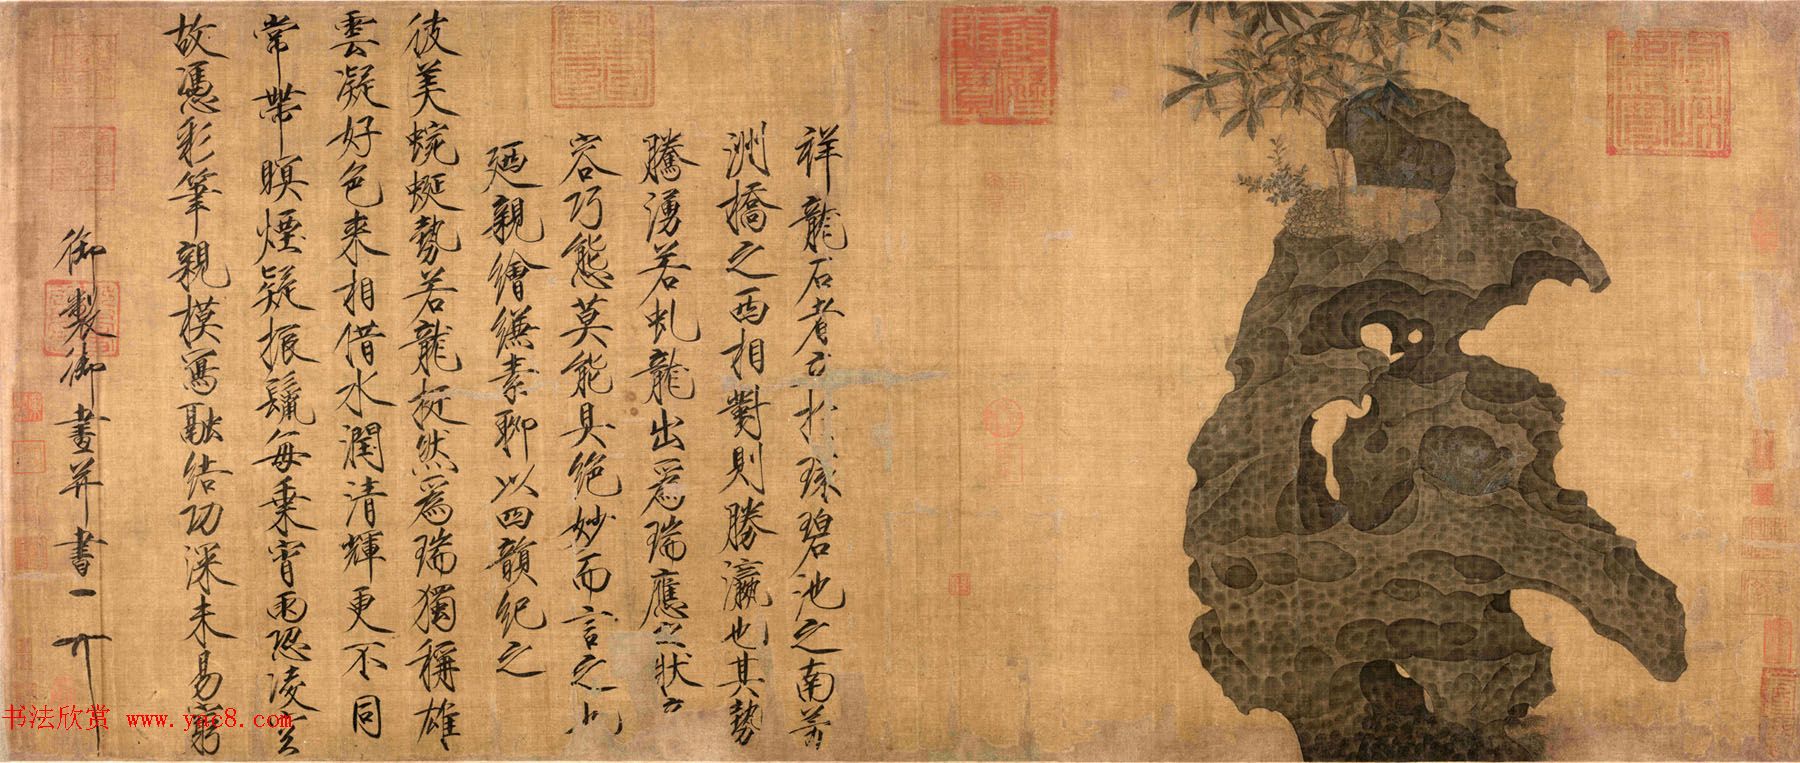 祥龍石者立於環碧池之南芳
洲橋之西相對則勝瀛也其勢
騰湧若虬龍出爲瑞應之狀奇
容巧態莫能具絕妙而言之也
廼親繪縑素聊以四韻紀之
彼美蜿蜒勢若龍挺然爲瑞獨稱雄
雲凝好色來相借水潤清輝更不同
常帶暝煙疑振鬣每乘宵雨恐凌空
故憑彩筆親模寫融結功深未易窮
御製御畫并書
書法欣赏 www.yac8.com